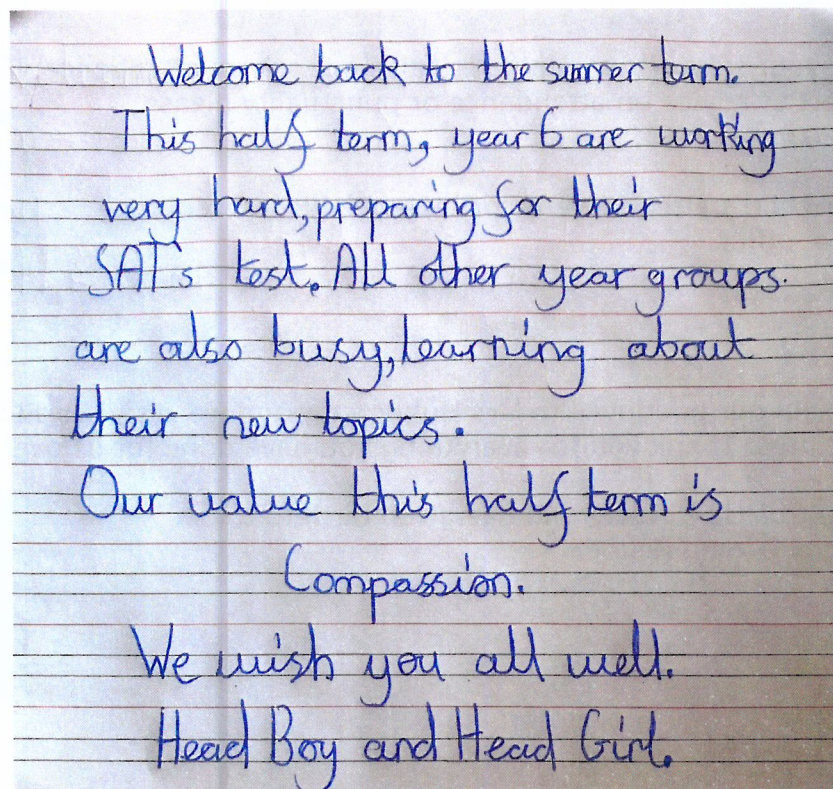 Welcome back to the summer term.
This half term, year 6 are working
very hard, preparing for their
SAT's test. All other year groups.
are also busy, learning about
their new topics.
Our value this half term is
Compassion.
We wish you all well.
Head Boy and Head Girl.